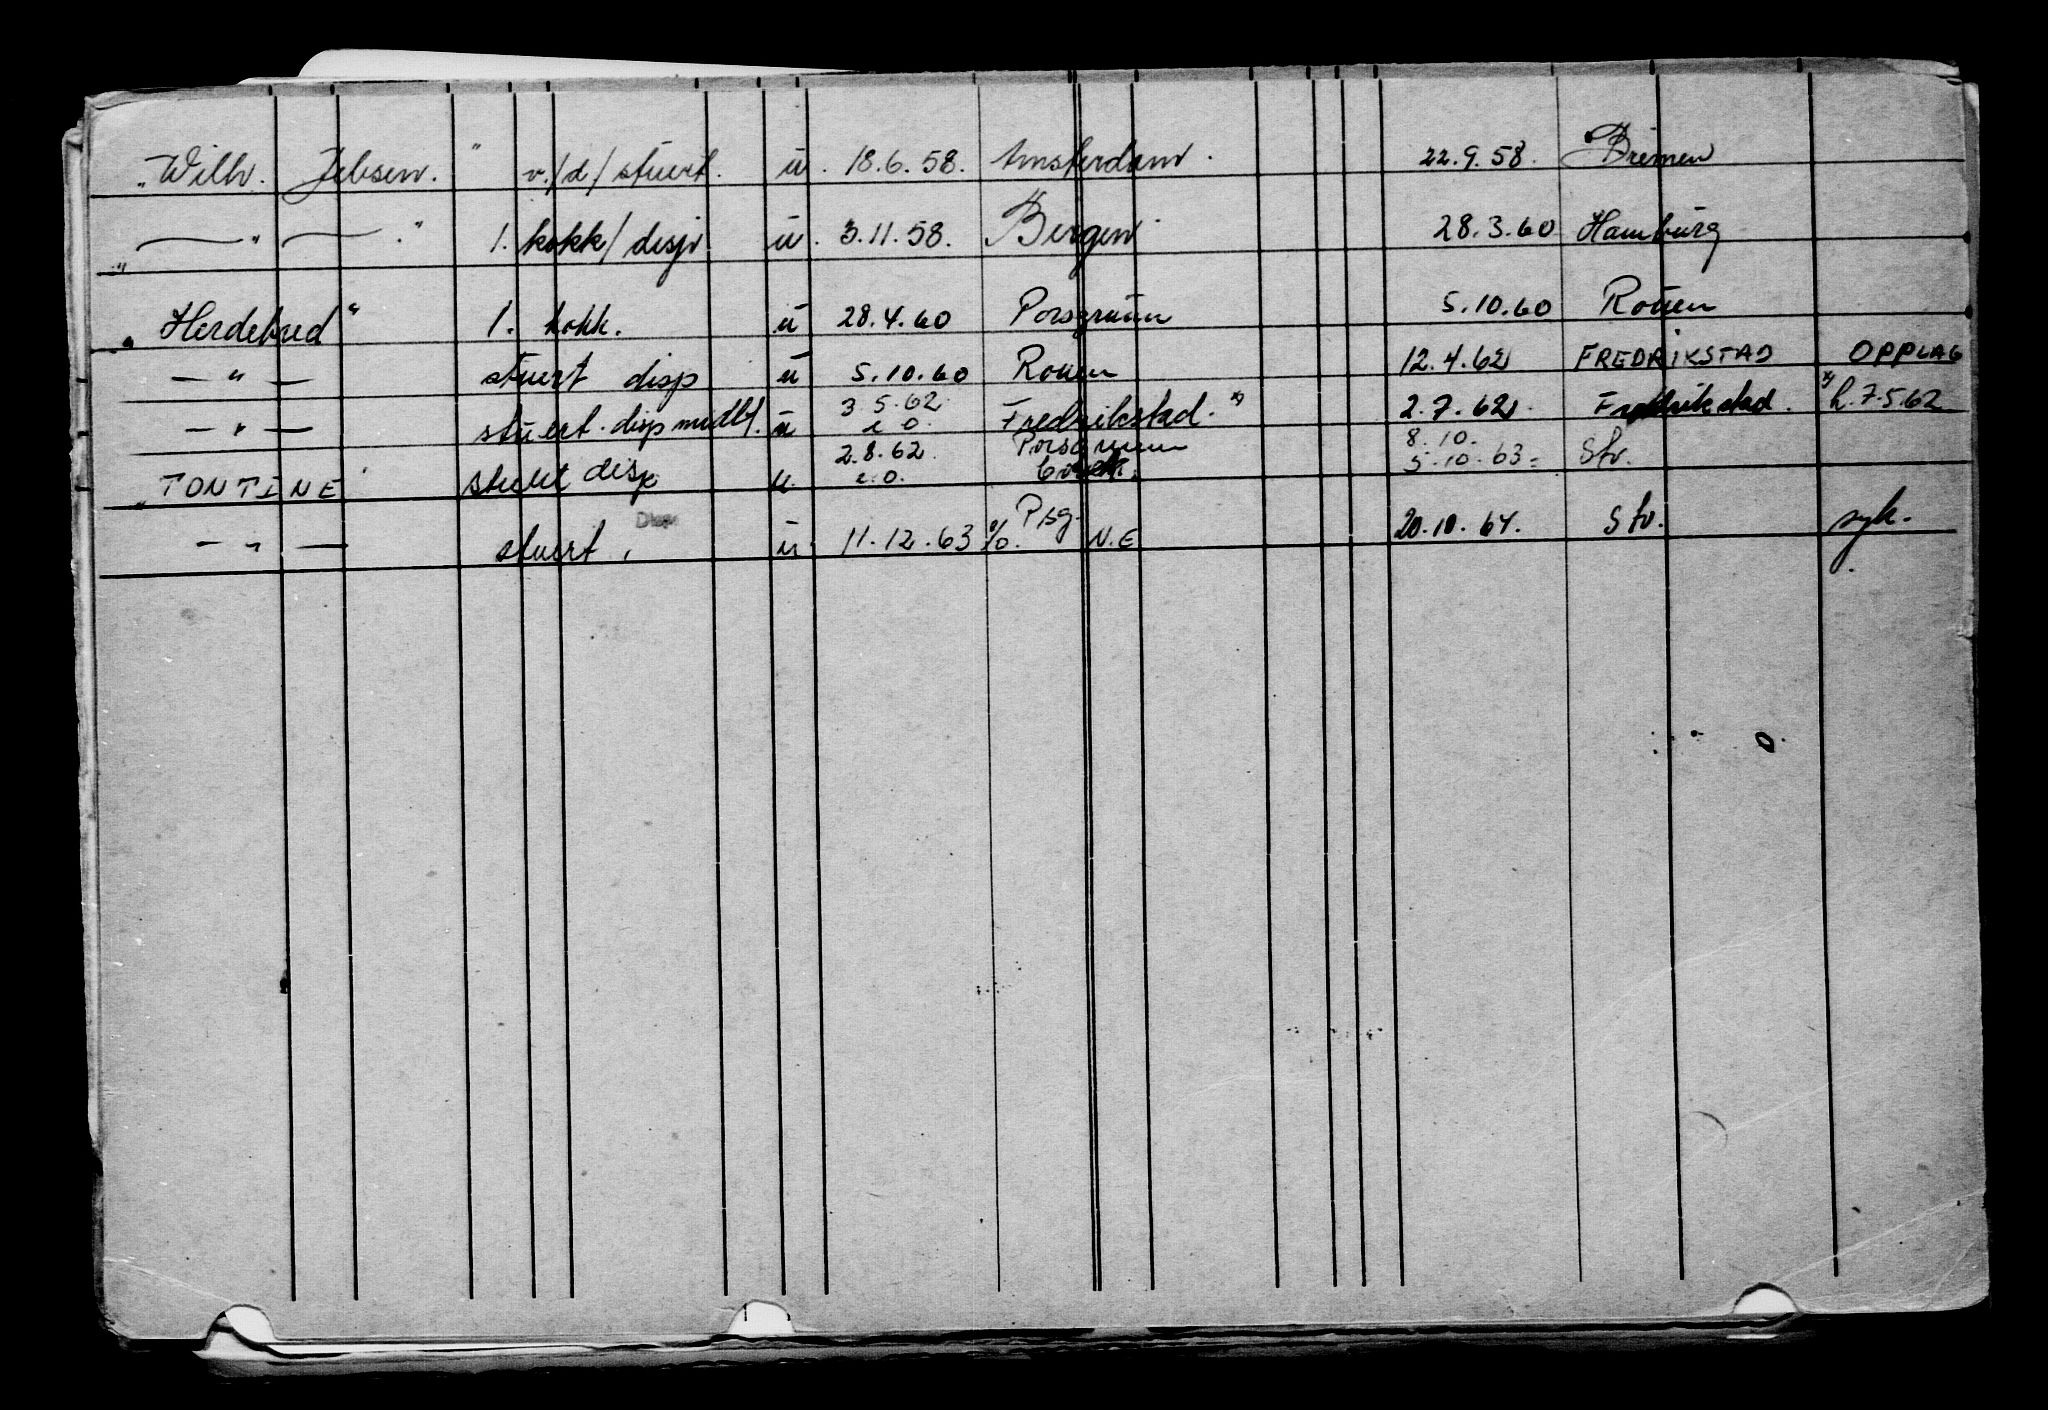 "Wilh. Jebsen." v./d/stuert. u. 18.6.58. Amsterdam. 22.9.58. Bremen
— " — ." 1. kokk/disp. u. 3.11.58. Bergen 28.3.60 Hamburg
"Herdebred" 1. kokk. u 28.4.60 Porsgrunn 5.10.60 Rouen
— " — stuert disp u 5.10.60 Rouen 12.4.62 FREDRIKSTAD OPPLAG
— " — stuert. disp midlt. u 3.5.62 e.o. Fredrikstad. x) 2.7.62. Fredrikstad. x) h.7.5.62
"TONTINE stuert disp u. 2.8.62. e.o. Porsgrunn 8.10. 5.10.63 Stv.
— " — stuert. Disp u 11.12.63 % Psg. N.E 20.10.64. Stv. syk.